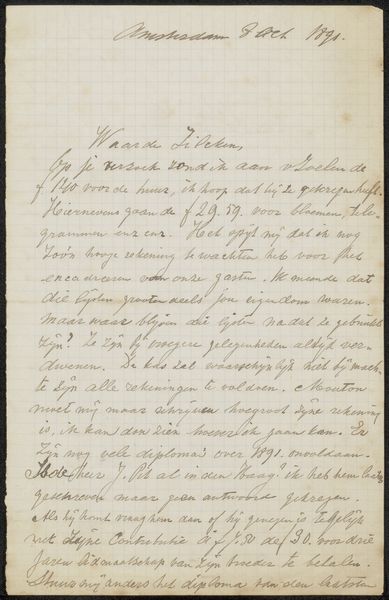 Amsterdam 8 Oct 1891.
Waarde Zilcken,
Op je verzoek zond ik aan v Zoelen de
f 140 voor de huur, ik hoop dat hij ze gekregen heeft.
Hiernevens gaan de f 29.59. voor bloemen, tele
grammen enz enz. Het spijt mij dat ik nog
zoo'n hooge rekening te wachten heb voor het
encadreren van onze gasten. Ik meende dat
die lijsten grooten deels jou eigendom waren.
Maar waar blijven die lijsten nadat ze gebruikt
zijn? Ze zijn bij vroegere gelegenheden altijd ver-
dwenen. De kas zal waarschijnlijk niet bij mach
te zijn alle rekeningen te voldoen. Mouton
moet mij maar schrijven hoegroot zijne rekening
is, ik kan dan zien hoever ik gaan kan. Er
zijn nog vele diploma's over 1891. onvoldaan.
Is de heer J. Pit al in den Haag? ik heb hem laatst
geschreven maar geen antwoord gekregen.
Als hij komt vraag hem dan of hij genegen is tegelijk
met zijne Contributie à f 7.50 de f 30. voor drie
jaren lidmaatschap van zijn broeder te betalen.
Stuur mij anders het diploma van den laatsten